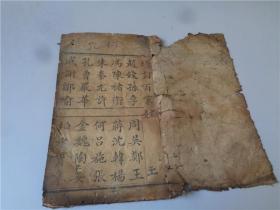 訂百家姓
趙錢孫李
周吳鄭王
馮陳褚衛
蔣沈韓楊
朱秦尤許
何呂施張
孔曹嚴華
金魏陶姜
戚謝鄒喻
王